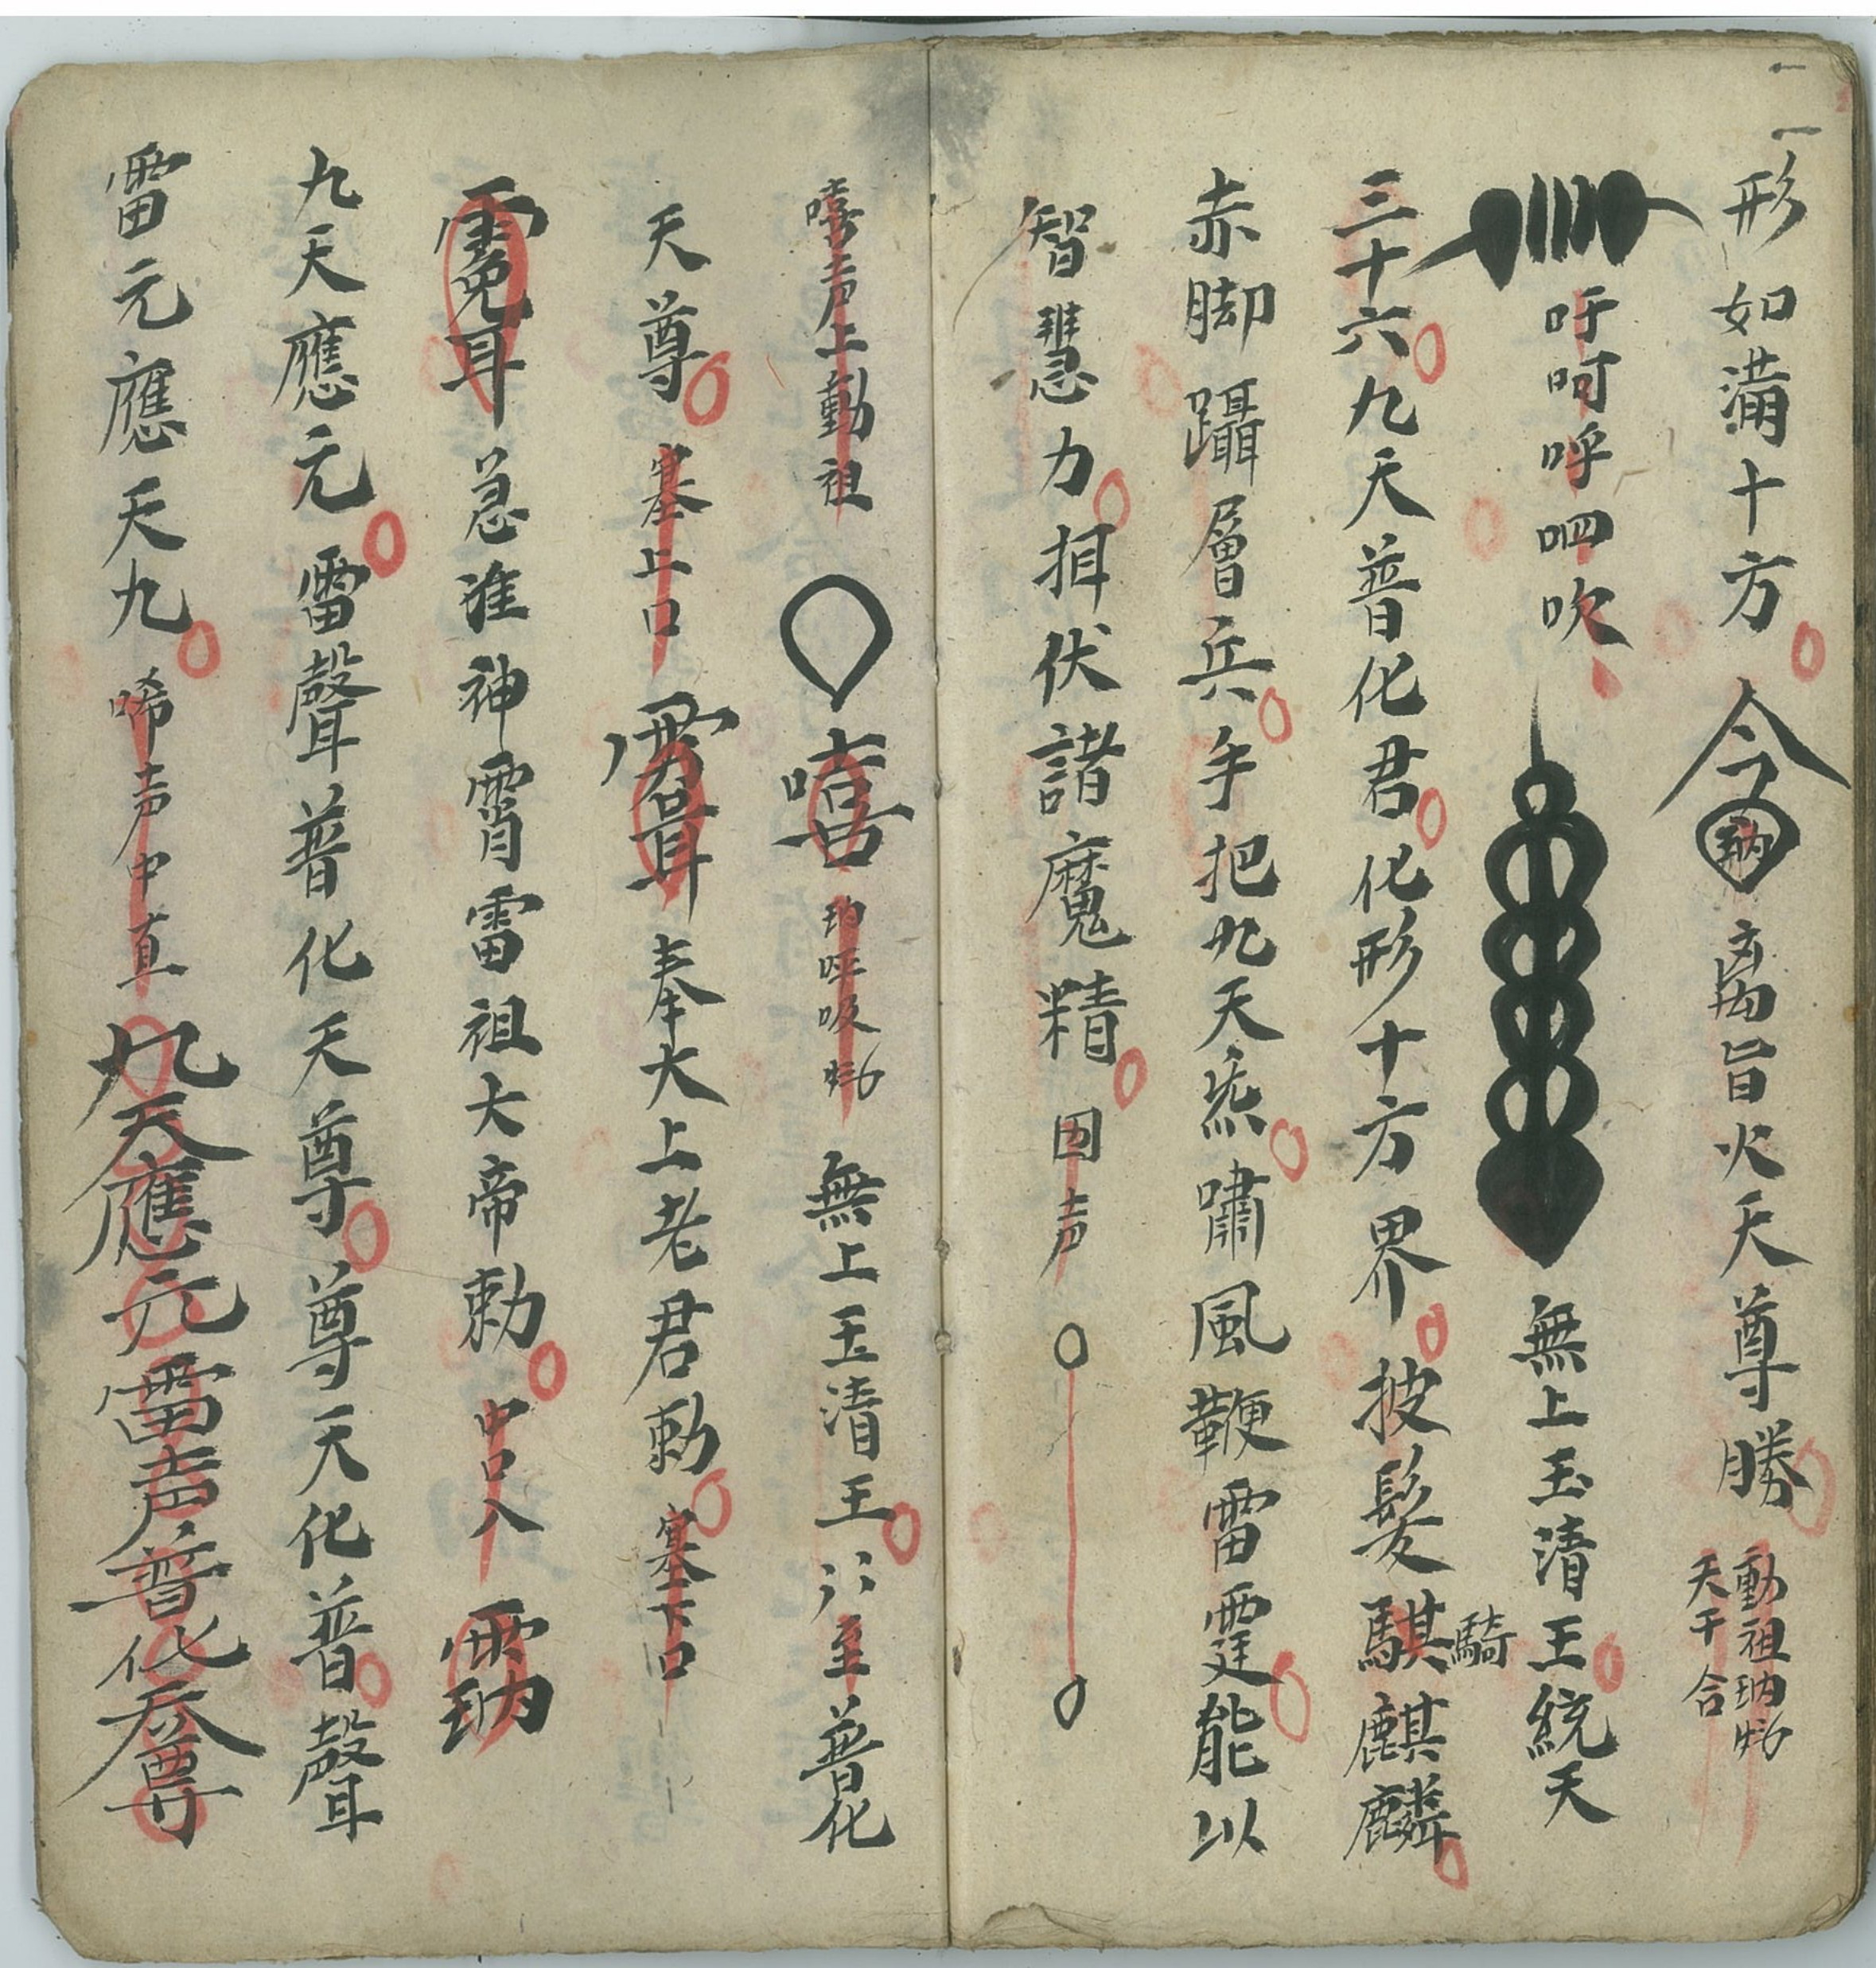 形如滿十方 令 离旨火天尊勝 動祖 天干合
吁呵呼呬吹 無上玉清王統天
三十六九天普化君化形十方界披髮騏騎麒麟
赤脚躡層兵手把九天炁嘯風鞭雷霆能以
智慧力揖伏諸魔精 因声
嘻声上動祖 嘻 呼吸 無上玉清王 至普化
天尊 塞上口 奉大上老君勅 塞下口
急准神霄雷祖大帝勅 中口入
九天應元雷聲普化天尊尊天化普聲
雷元應天九 唏声中直 九天應元雷声普化天尊